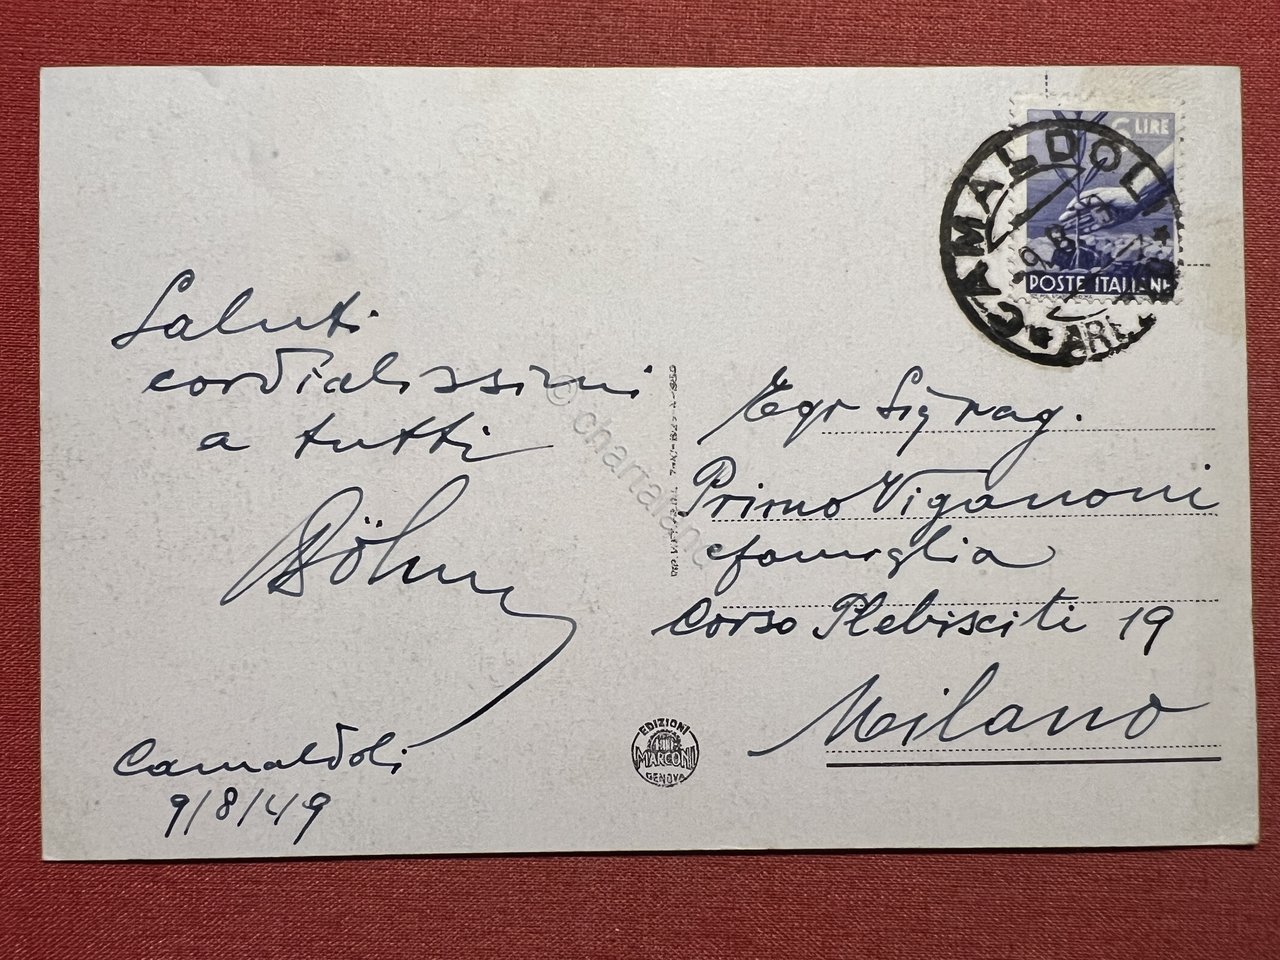 Saluti
cordialissimi
a tutti
Böhm
Camaldoli
9/8/49
6 LIRE
POSTE ITALIANE
CAMALDOLI
9.8.
Egr Sig rag.
Primo Viganoni
e famiglia
Corso Plebisciti 19
Milano
EDIZIONI
MARCONI
GENOVA
© chartaland